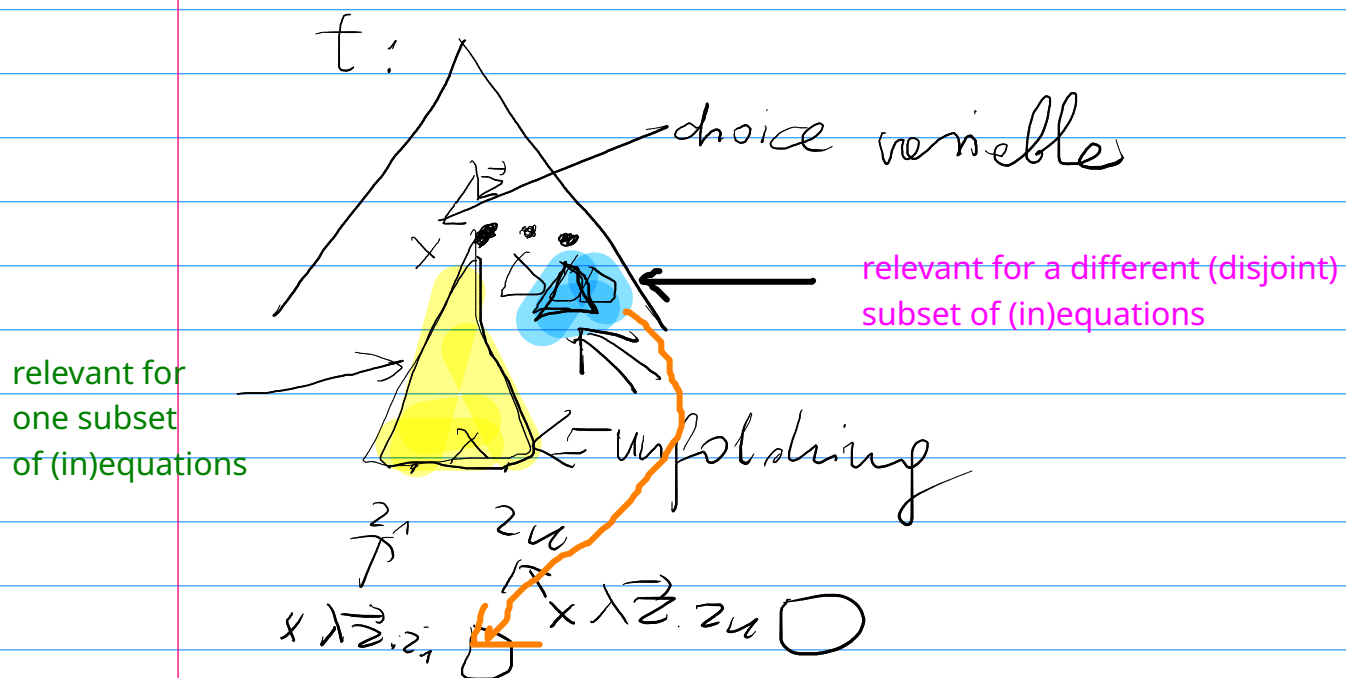 t:
choice variables
λz⃗
x
relevant for a different (disjoint)
subset of (in)equations
relevant for
one subset
of (in)equations
x
unfolding
z₁ zₙ
x λz⃗.z₁ x λz⃗.zₙ